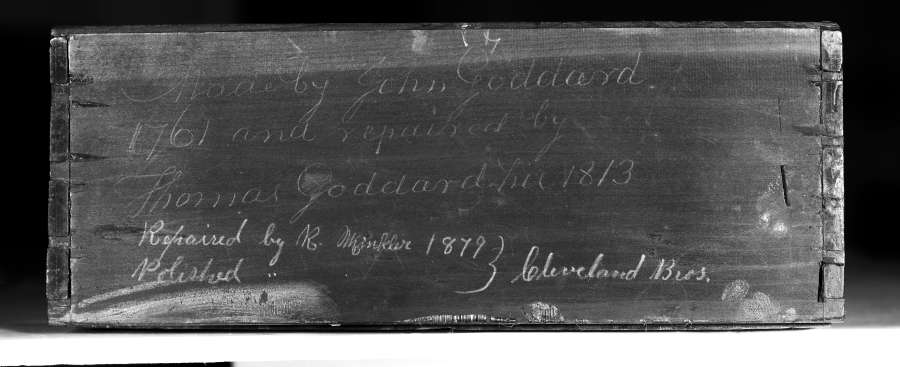 Made by John Goddard
1761 and repaired by
Thomas Goddard 1813
Repaired by R. Minkler 1879 } Cleveland Bros.
Polished "